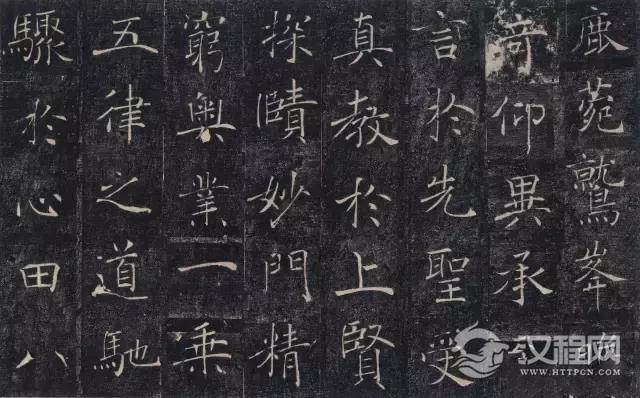 鹿菀鷲峯
竒仰異承
言於先聖受
真教於上賢
探賾妙門精
窮奧業一乘
五律之道馳
驟於心田八
汉程网
WWW.HTTPCN.COM